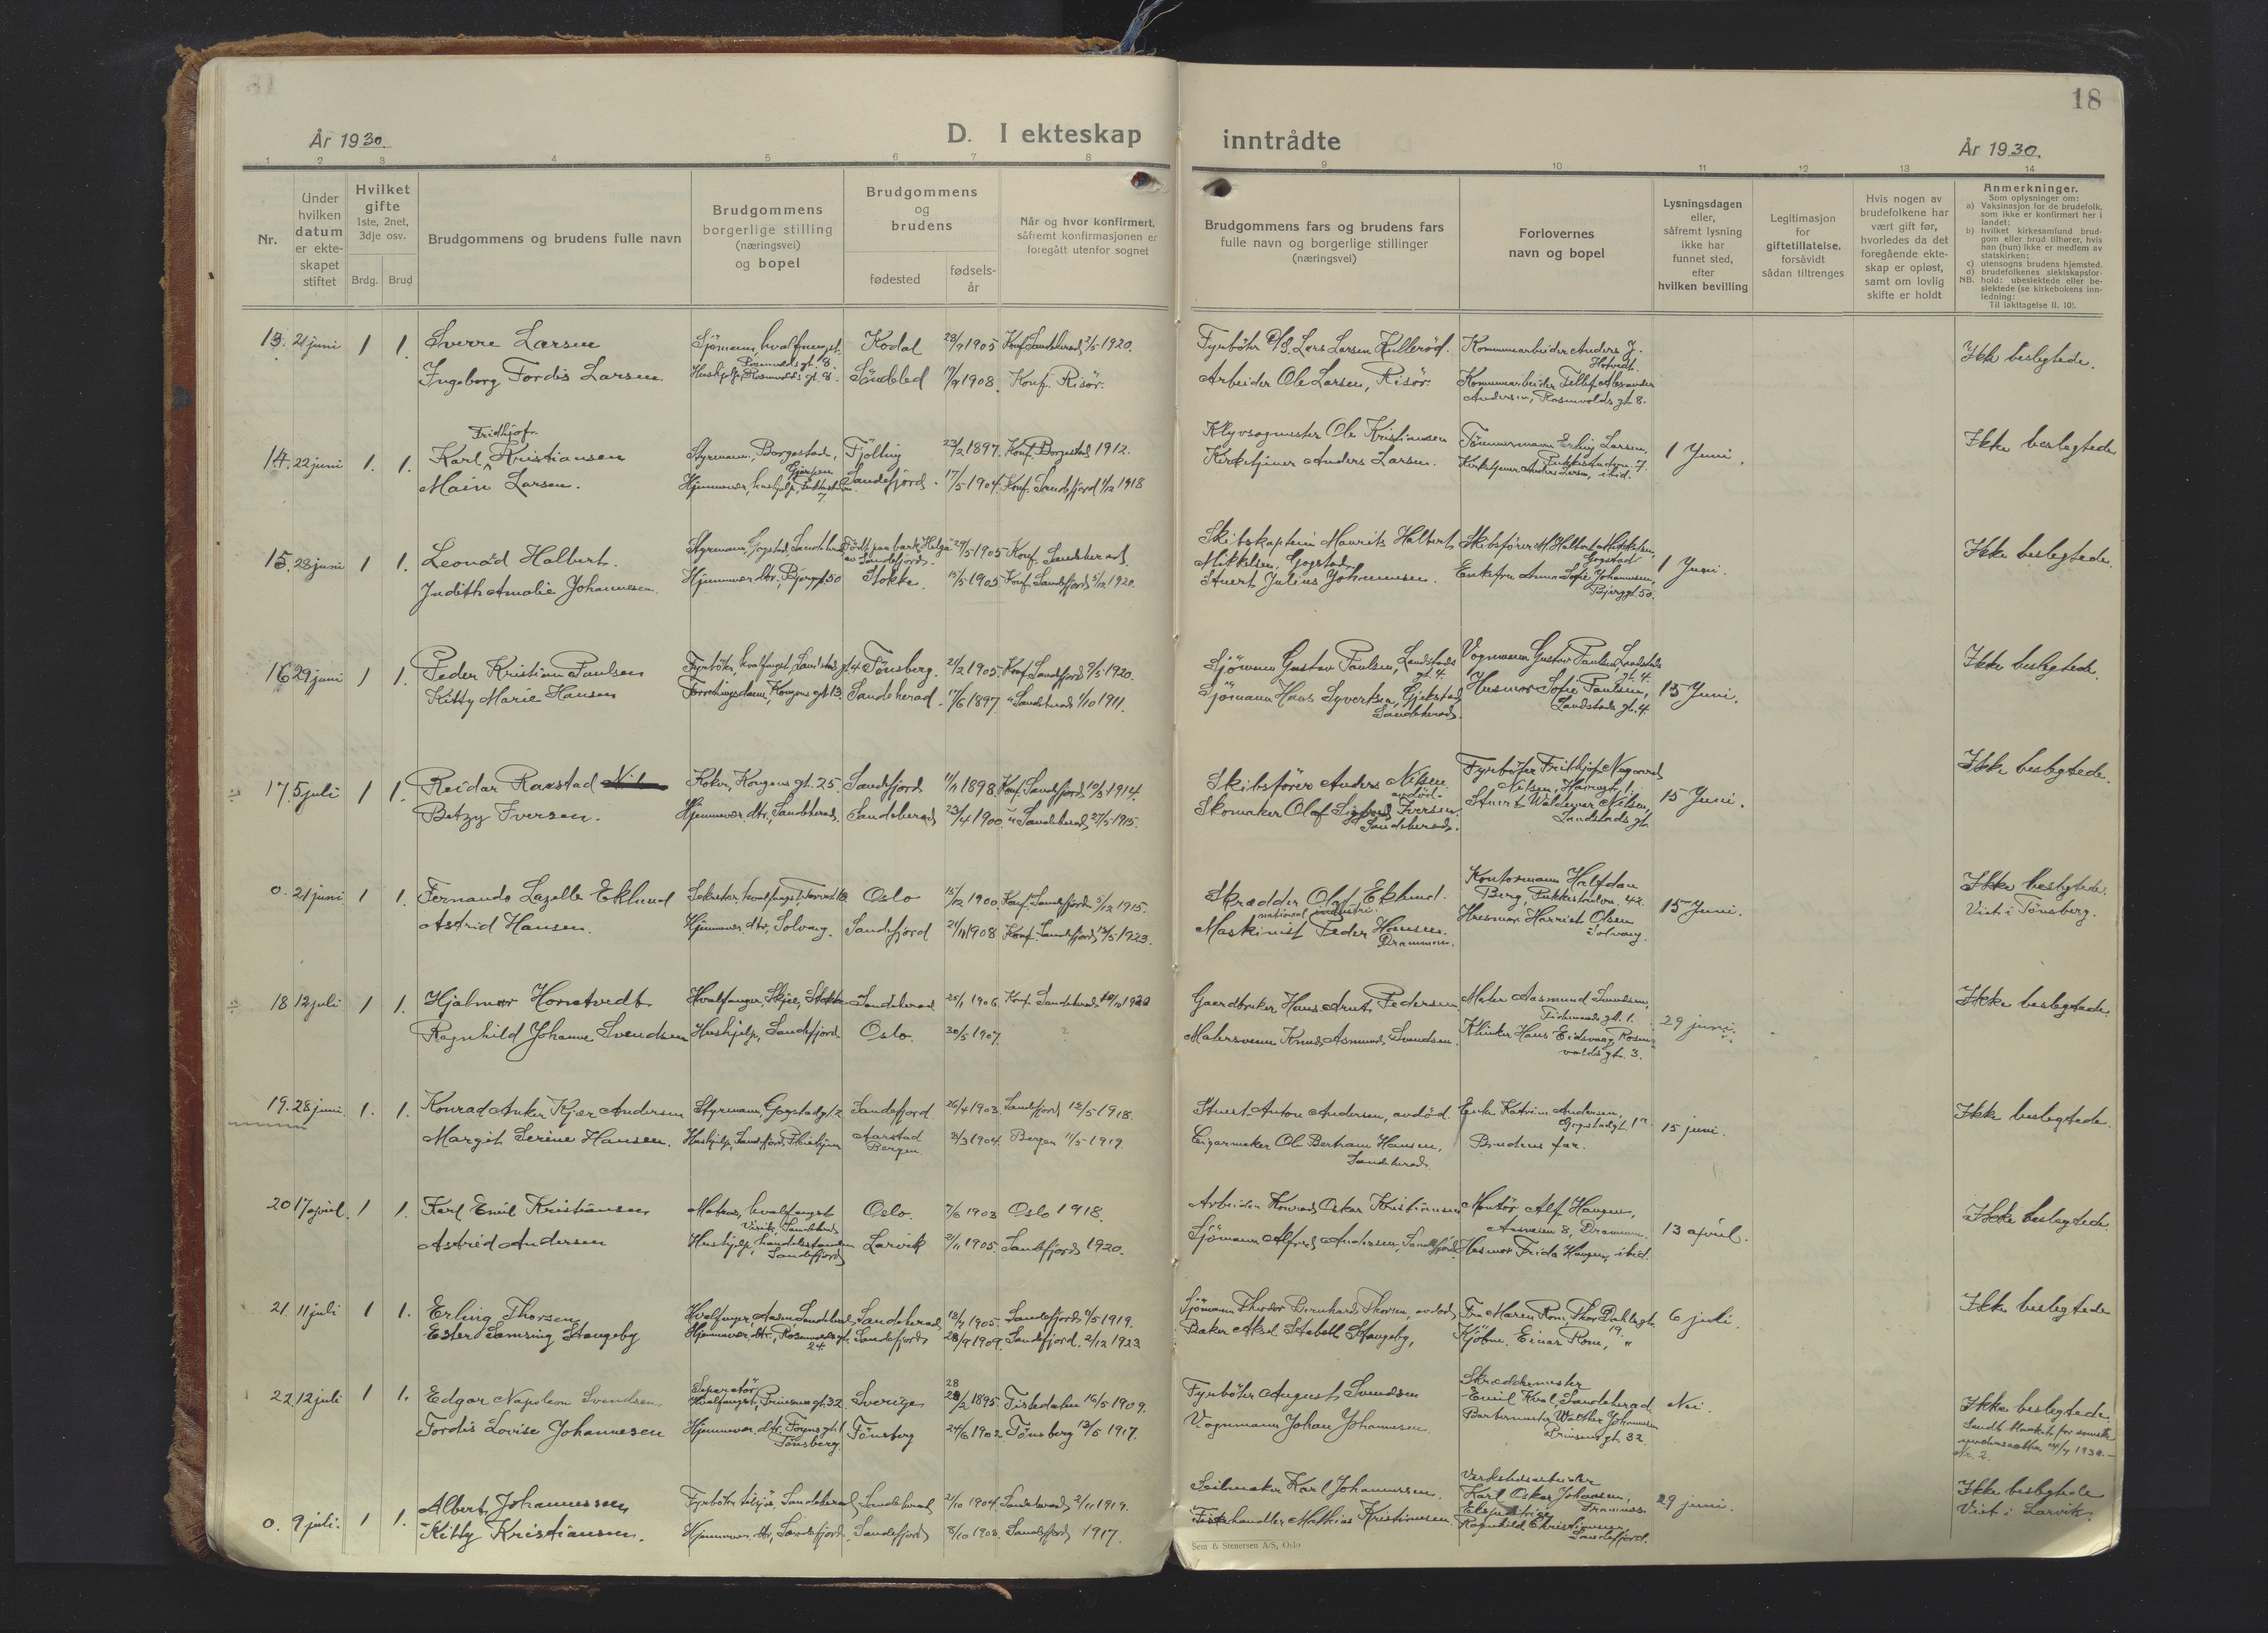 18
År 1930.
D. I ekteskap inntrådte
År 1930.
1 2 3 4 5 6 7 8 9 10 11 12 13 14
Nr.
Under hvilken datum er ekte-skapet stiftet
Hvilket gifte 1ste, 2net, 3dje osv.
Brdg. Brud
Brudgommens og brudens fulle navn
Brudgommens borgerlige stilling (næringsvei) og bopel
Brudgommens og brudens
fødested
fødsels-år
Når og hvor konfirmert, såfremt konfirmasjonen er foregått utenfor sognet
Brudgommens fars og brudens fars fulle navn og borgerlige stillinger (næringsvei)
Forlovernes navn og bopel
Lysningsdagen eller, såfremt lysning ikke har funnet sted, efter hvilken bevilling
Legitimasjon for giftetillatelse, forsåvidt sådan tiltrenges
Hvis nogen av brudefolkene har vært gift før, hvorledes da det foregående ekte-skap er opløst, samt om lovlig skifte er holdt
Anmerkninger.
Som oplysninger om:
a) Vaksinasjon for de brudefolk, som ikke er konfirmert her i landet;
b) hvilket kirkesamfund brud-gom eller brud tilhører, hvis han (hun) ikke er medlem av statskirken;
c) utensogns brudens hjemsted.
d) brudefolkenes slektskapsfor-hold: ubeslektede eller be-slektede (se kirkebokens inn-ledning:
NB. Til iakttagelse II. 10).
13. 21 juni 1 1. Sverre Larsen Sjømann, hvalfangst, Rosenvolds gt. 8. Kodal 1905 Konf. Sandeherad 2/5 1920. Fyrbøter Lars Larsen Kullerød. Kommunearbeider Anders J. Hotvedt. Ikke beslegtede.
Ingeborg Tordis Larsen Hushjelp, Rosenvolds gt. 8. Søndeled 17/9 1908. Konf. Risør. Arbeider Ole Larsen, Risør. Kommunearbeider Andersen, Rosenvolds gt. 8.
14. 22 juni 1. 1. Karl Fridthjof Kristiansen Styrmann, Borgestad, Gjerpen Fjølting 23/2 1897. Konf. Borgestad 1912. Ole Kristiansen Tømmermann Erling Larsen, Pukkestadvn. 7. 1 Juni. Ikke beslegtede
Main Larsen. Hjemmevær., hushjelp, 7. Sandefjord. 17/5 1904. Konf. Sandefjord 1/12 1918 Kirketjener Anders Larsen. Kirketjener Anders Larsen, ibid.
15. 28 juni 1 1. Leonard Halbert. Styrmann, Gogstad, Sandeherad Født paa bark "Helga" av Sandefjord. 1905 Konf. Sandeherad. Skibskaptein Maurits Halbert Mikkelsen, Gogstad. Skibsfører M. Halbert Mikkelsen, Gogstad 1 Juni. Ikke beslegtede.
Judith Amalie Johannesen. Hjemmevær. dtr., Bjerggt. 50 Stokke. 15/5 1905 Konf. Sandefjord 5/12 1920. Stuert Julius Johannesen. Enkefru Anna Sofie Johannesen, Bjerggt. 50.
16 29 juni 1 1. Peder Kristian Paulsen Fyrbøter, hvalfangst, Landstads gt. 4 Tønsberg. 21/2 1905. Konf. Sandefjord 9/5 1920. Sjømann Gustav Paulsen, Landstads gt. 4. Vognmann Gustav Paulsen, Landstads gt. 4. 15 Juni. Ikke beslegtede.
Kitty Marie Hansen Forretningsdame, Kongens gt. 13. Sandeherad. 17/6 1897. " Sandeherad 1/10 1911. Sjømann Hans Syvertsen, Gjekstad, Sandeherad. Husmor Sofie Paulsen, Landstads gt. 4.
17. 5 juli 1 1. Reidar Raastad Koker, Kongens gt. 25. Sandefjord 1898. Konf. Sandefjord 1914. Skibsfører Anders Nilsen avdød. Fyrbøter Frithjof Nilsen, 15 Juni. Ikke beslegtede.
Betzy Iversen. Hjemmevær. dtr., Sandeherad. Sandeherad 23/4 1900. " Sandeherad 27/5 1915. Skomaker Olaf Iversen Sandeherad. Stuert Waldemar Nilsen, Landstads gt.
0. 21 juni 1 1. Fernando Lazelle Eklund Sekretær, hvalfangst, Torvet Oslo 15/12 1900. Konf. Sandefjord 5/12 1915. Skredder Eklund. Kontormann Halfdan Berg, Pukkestadvn. 42. 15 Juni. Ikke beslegtede. Viet i Tønsberg.
Astrid Hansen. Hjemmevær. dtr., Solvang. Sandefjord 1908 Konf. Sandefjord 13/5 1923. Maskinist national industri Peder Hansen. Drammen. Husmor Harriet Olsen Solvang.
18 12 juli 1 1. Hjalmar Horntvedt Hvalfanger, Skjee, Stokke Sandeherad 25/1 1906. Konf. Sandeherad 1920 Gaardbruker Hans Arnt Pedersen Maler Aasmund Svendsen, gt. 1. 29 juni. Ikke beslegtede.
Ragnhild Johanne Svendsen Hushjelp, Sandefjord Oslo. 30/5 1907. ? Malersvenn Knud Asmund Svendsen. Hans Eidsvaag, Rosenvolds gt. 3.
19. 28 juni 1. 1. Konrad Anker Kjær Andersen Styrmann, Gogstadgt. 2 Sandefjord 26/4 1903. Sandefjord 12/5 1918. Stuert Anton Andersen, avdød. Enke Katrine Andersen, Gogstadgt. 15 juni. Ikke beslegtede.
Margit Serine Hansen. Hushjelp, Sandefjord, Aarstad Bergen 3/3 1904. Bergen 11/5 1919. Cigarmaker Ole Bertram Hansen, Sandeherad. Brudens far.
20 17 april. 1 1. Karl Emil Kristiansen Matros, hvalfangst Virik, Sandeherad Oslo. 7/6 1903 Oslo 1918. Arbeider Konrad Oskar Kristiansen Montør Alf Haugen, Aasveien 8, Drammen. 13 april. Ikke beslegtede.
Astrid Andersen Hushjelp, handelsstanden Sandefjord Larvik 2/11 1905. Sandefjord 1920. Sjømann Alfred Andersen, Sandefjord Husmor Frida Haugen, ibid.
21. 11 juli 1 1. Erling Thorsen Hvalfanger, Aasen Sandeherad Sandeherad 1905. Sandefjord 1919. Sjømann Theodor Bernhard Thorsen, avdød, Fru Maren Rom, Thor Dahlsgt. 19. 6 juli. Ikke beslegtede
Ester Samsing Stangeby Hjemmevær. dtr., Rosenvoldsgt. 24 Sandefjord 28/9 1909. Sandefjord. 2/12 1923 Baker Aksel Stabell Stangeby, Kjøbm. Einar Rom, "
22 12 juli 1 1. Edgar Napoleon Svendsen Separatør, Hvalfangst, Prinsens gt. 32 Sverige 28/2 1895. Tistedalen 16/5 1909. Fyrbøter August Svendsen Skreddermester Emil Kval, Sandeherad Nei. Ikke beslegtede.
Tordis Lovise Johannesen Hjemmevær. dtr. Foyns gt. 1 Tønsberg. Tønsberg 24/6 1902. Tønsberg 13/5 1917. Vognmann Johan Johannesen. Barbermester Walther Johannesen Prinsens gt. 32. Sendt for svenske undersaatter 14/7 1930. Nr. 2.
0. 9 juli. 1 1. Albert Johannessen Fyrbøter tilsjøs, Sandeherad Sandeherad 2/10 1904. Sandeherad 2/11 1919. Seilmaker Karl Johannessen. Verkstedsarbeider Karl Oskar Johansen, Framnes. 29 juni. Ikke beslegtede
Kitty Kristiansen. Hjemmevær. dtr., Sandefjord. Sandefjord 8/10 1903. Sandefjord 1917. Fiskehandler Mathias Kristiansen. Ekspeditrise Ragnhild Christiansen, Sandefjord. Viet i Larvik.
Sem & Stenersen A/S, Oslo